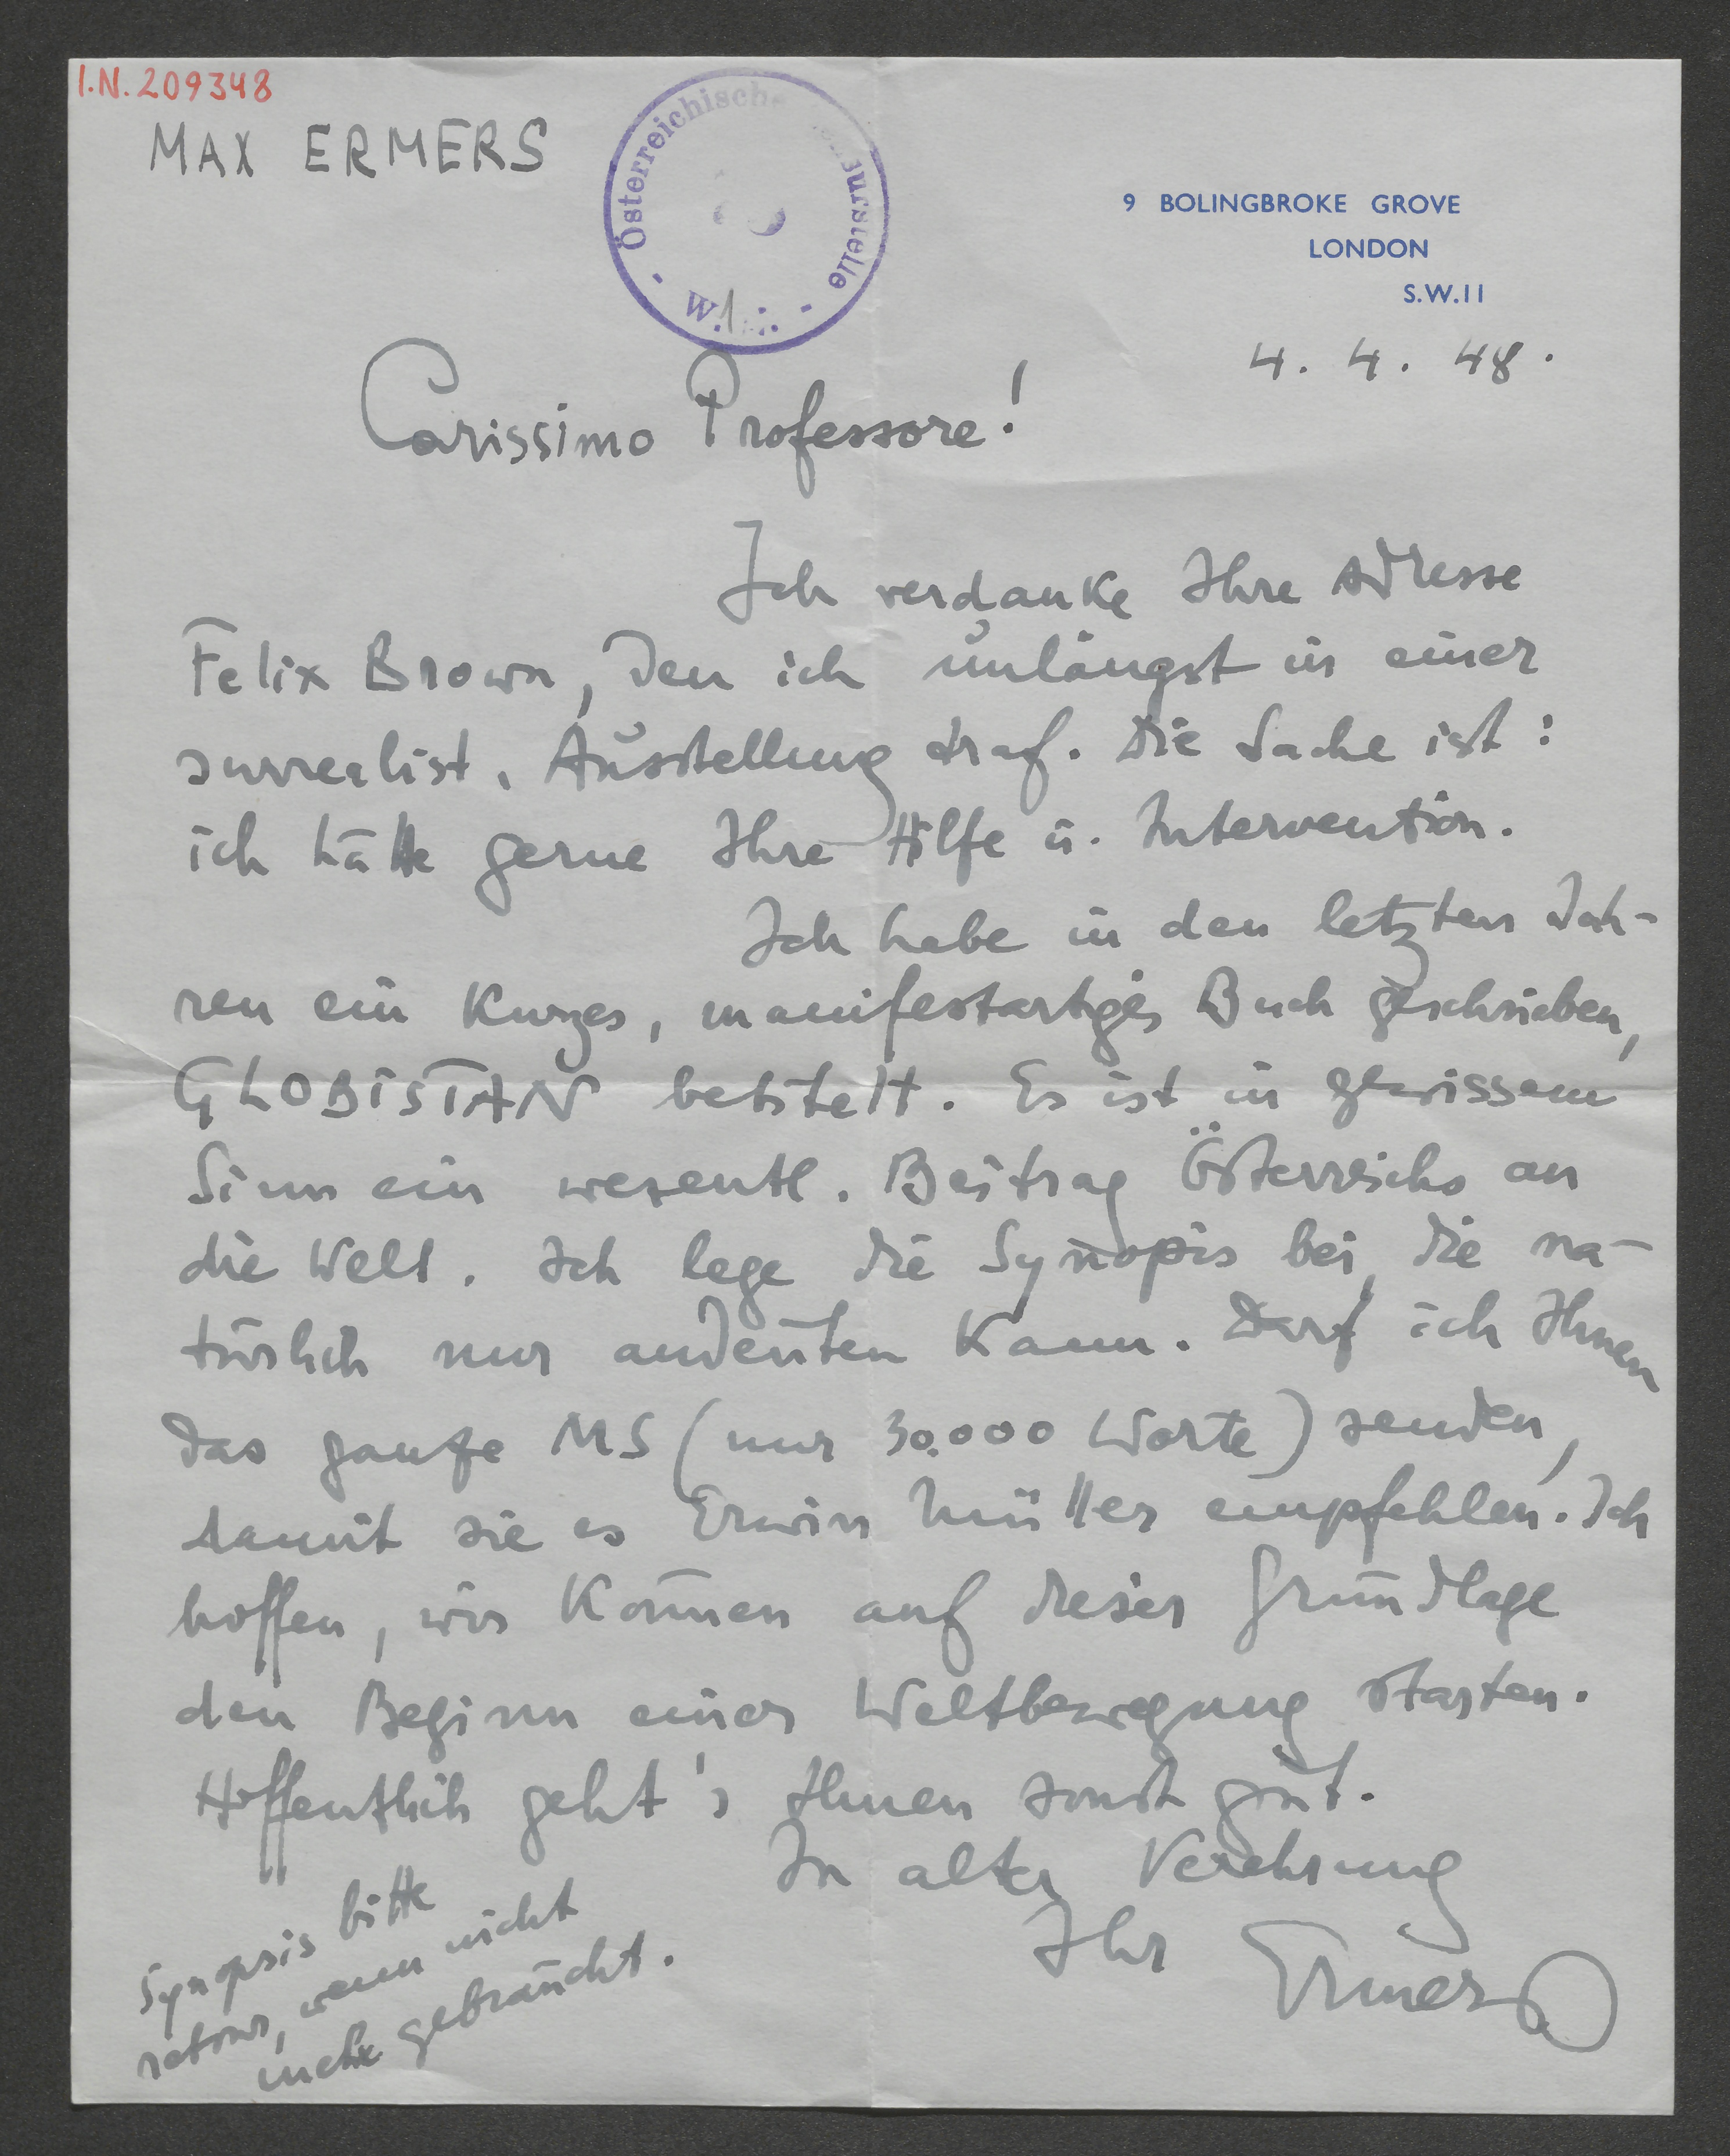 I.N. 209348
MAX ERMERS
Österreichische
W.
9 BOLINGBROKE GROVE
LONDON
S.W.11
4. 4. 48.
Carissimo Professore!
Ich verdanke Ihre Adresse
Felix Brown, den ich unlängst in einer
surrealist. Ausstellung traf. Die Sache ist:
ich hätte gerne Ihre Hilfe u. Intervention.
Ich habe in den letzten Jah-
ren ein kurzes, manifestartiges Buch geschrieben,
GLOBISTAN betitelt. Es ist in gewissem
Sinn ein wesentl. Beitrag Österreichs an
die Welt. Ich lege die Synopis bei, die na-
türlich nur andeuten kann. Darf ich Ihnen
das ganze MS (nur 30.000 Worte) senden,
damit sie es Erwin Müller empfehlen. Ich
hoffen, wir können auf dieser Grundlage
den Beginn einer Weltbewegung starten.
Hoffentlich geht's Ihnen sonst gut.
In alter Verehrung
Ihr Ermers
Synopsis bitte
retour, wenn nicht
mehr gebraucht.